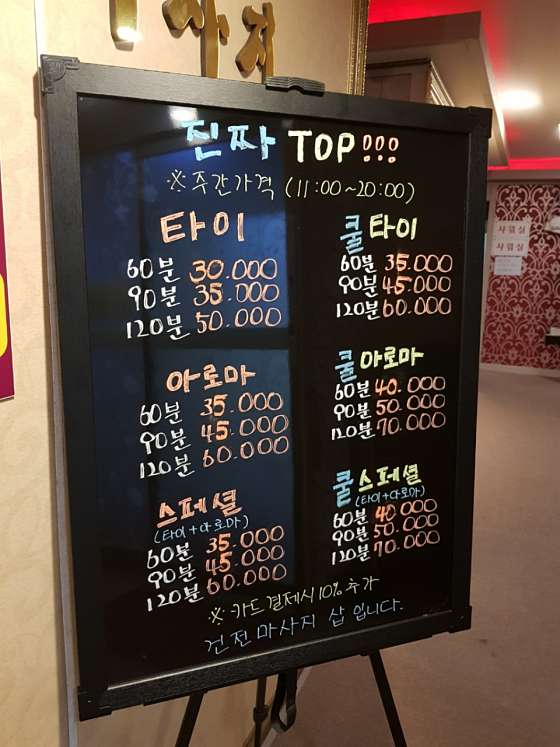 마사지
진짜 TOP!!!
※ 주간가격 (11:00~20:00)
타이
60분 30.000
90분 35.000
120분 50.000
쿨타이
60분 35.000
90분 45.000
120분 60.000
아로마
60분 35.000
90분 45.000
120분 60.000
쿨아로마
60분 40.000
90분 50.000
120분 70.000
스페셜
(타이+아로마)
60분 35.000
90분 45.000
120분 60.000
쿨스페셜
(타이+아로마)
60분 40.000
90분 50.000
120분 70.000
※ 카드 결제시 10% 추가
건전 마사지 샵 입니다.
샤워실
샤워실